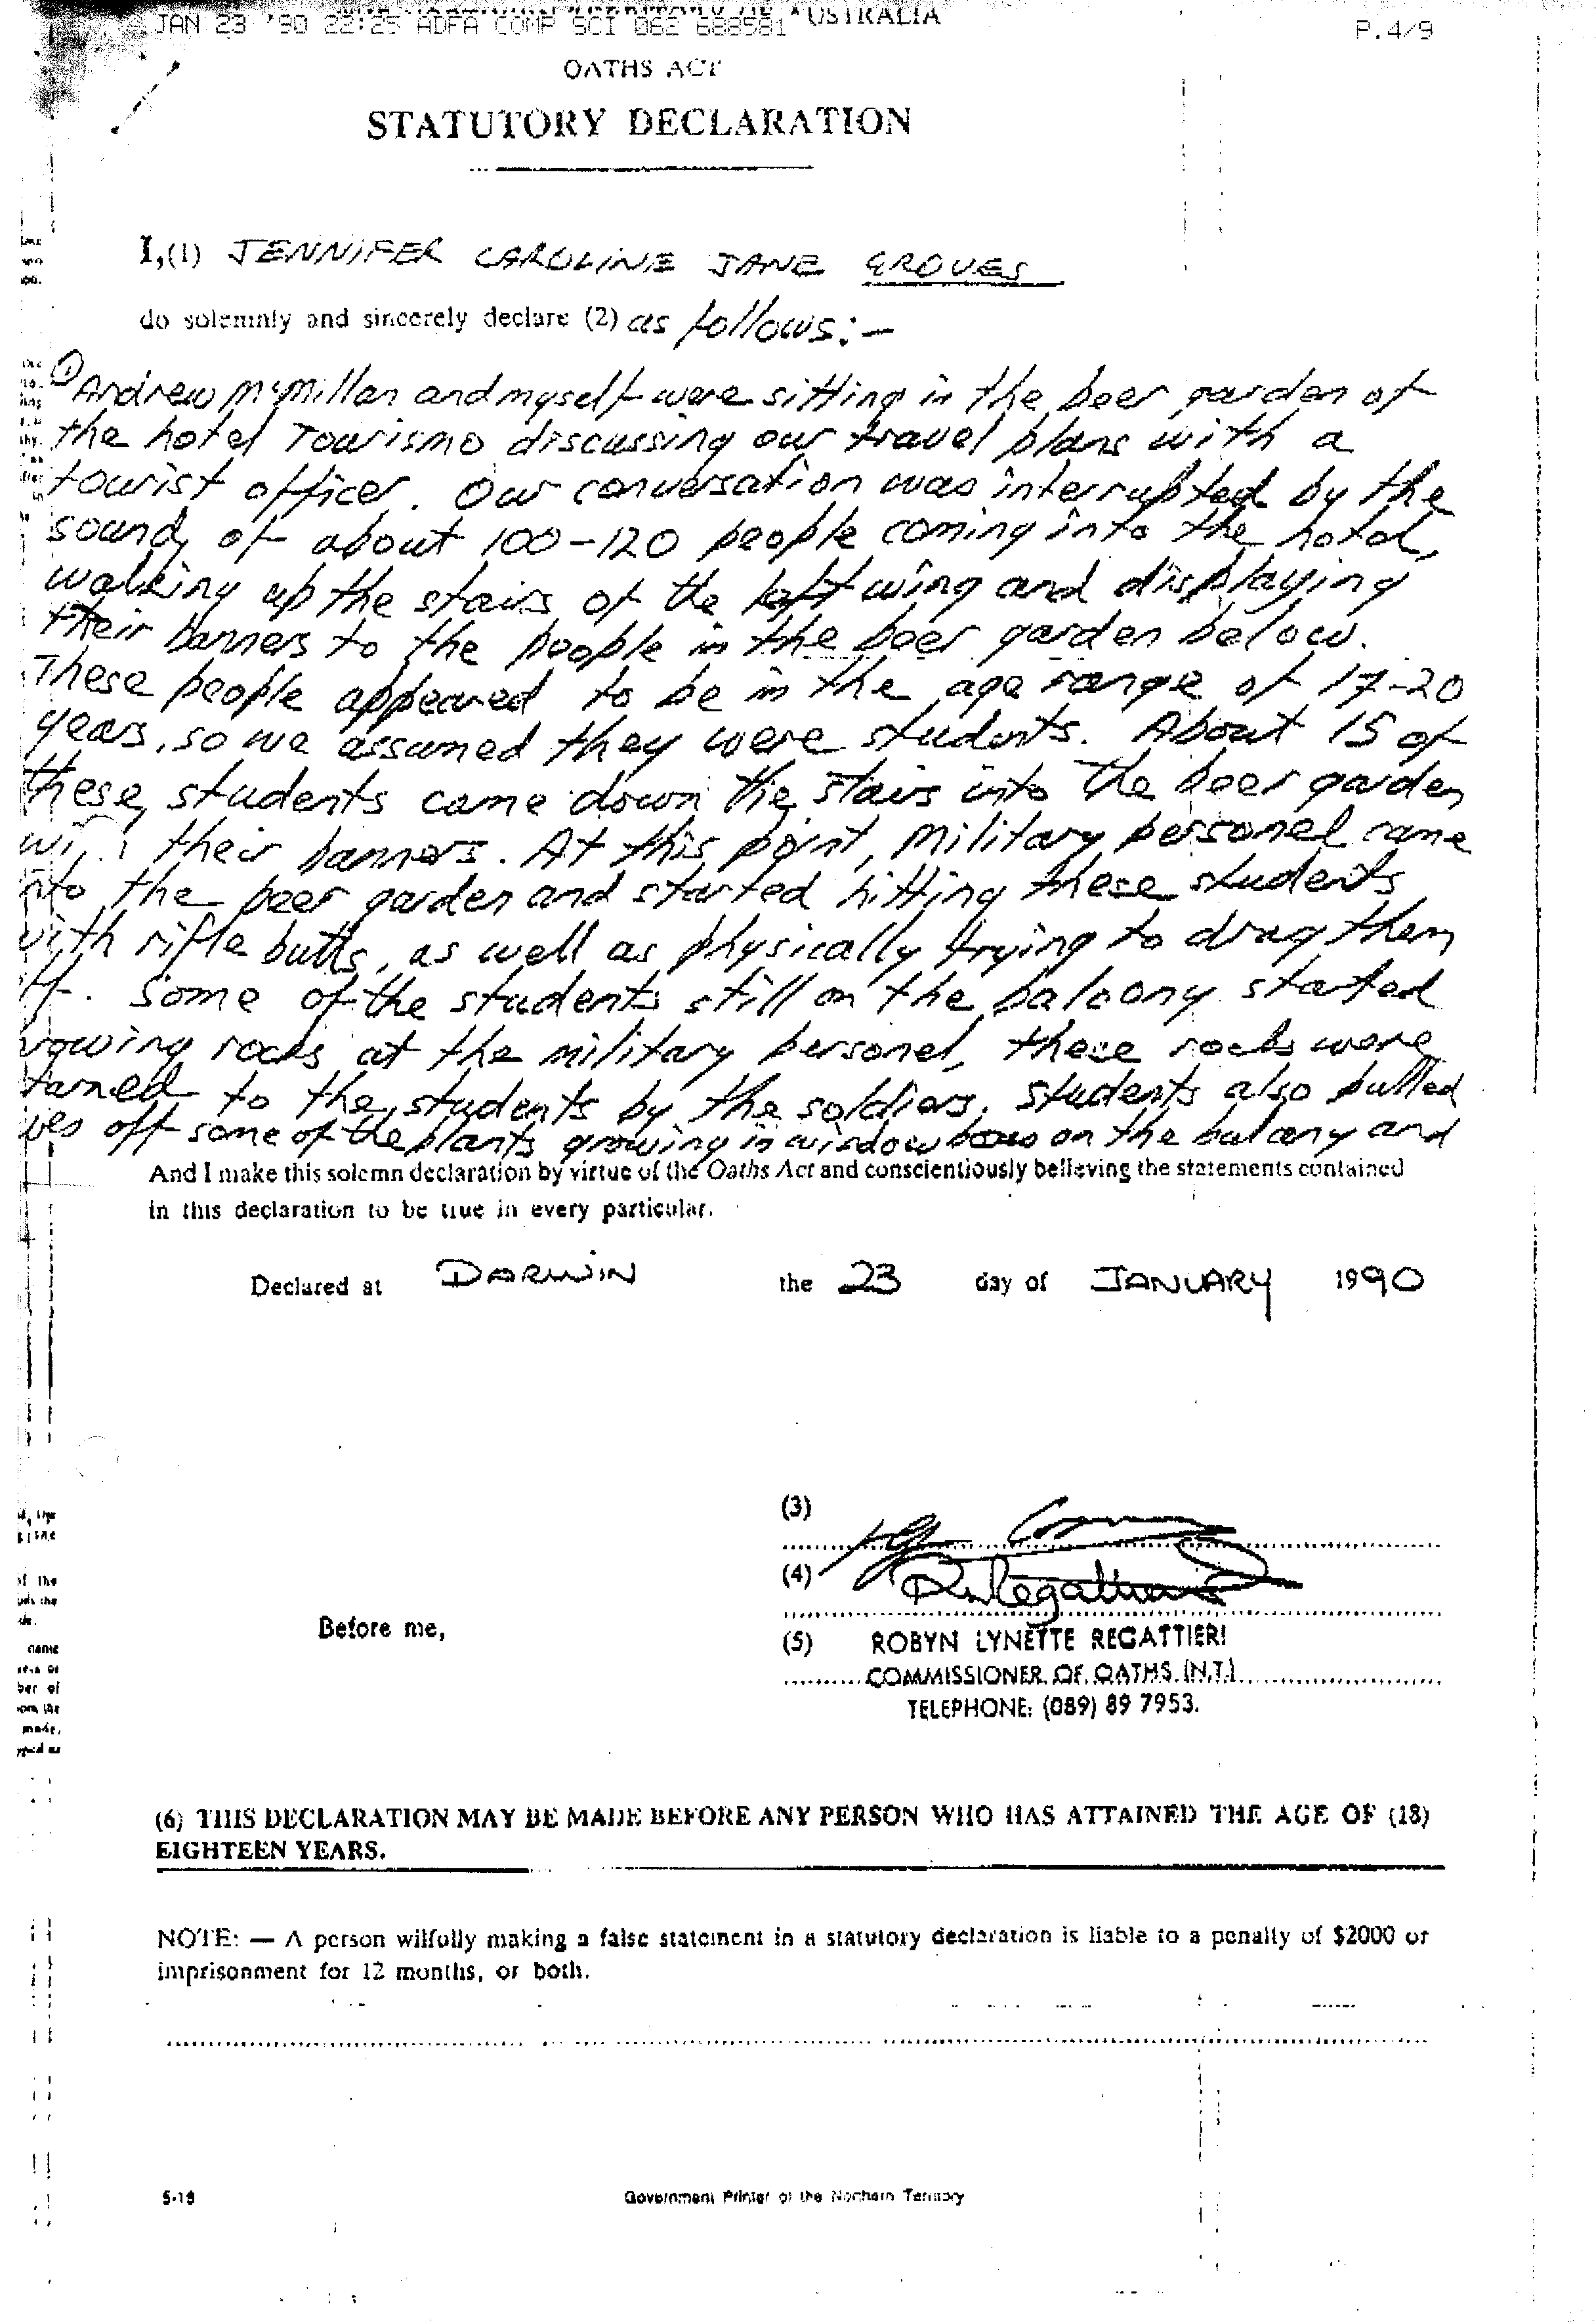 JAN 23 '90 22:25 ADFA COMP SCI 062 688581 AUSTRALIA P.4/9
OATHS ACT
STATUTORY DECLARATION
I,(1) JENNIFER CAROLINE JANE GROVES
do solemnly and sincerely declare (2) as follows:-
① Andrew McMillan and myself were sitting in the beer garden of
the hotel Tourismo discussing our travel plans with a
tourist officer. Our conversation was interrupted by the
sound of about 100-120 people coming into the hotel,
walking up the stairs of the left wing and displaying
their banners to the people in the beer garden below.
These people appeared to be in the age range of 17-20
years, so we assumed they were students. About 15 of
these students came down the stairs into the beer garden
their banners. At this point, military personel came
nto the beer garden and started hitting these students
with rifle butts, as well as physically trying to drag them
ff. Some of the students still on the balcony started
rowing rocks at the military personel, these rocks were
turned to the students by the soldiers. Students also pulled
ves off some of the plants growing in window boxes on the balcony and
And I make this solemn declaration by virtue of the Oaths Act and conscientiously believing the statements contained
in this declaration to be true in every particular.
Declared at DARWIN the 23 day of JANUARY 1990
(3)
(4)
Before me,
(5) ROBYN LYNETTE REGATTIERI
COMMISSIONER OF OATHS (N.T.)
TELEPHONE: (089) 89 7953.
name
ber of
made,
(6) THIS DECLARATION MAY BE MADE BEFORE ANY PERSON WHO HAS ATTAINED THE AGE OF (18)
EIGHTEEN YEARS.
NOTE: — A person wilfully making a false statement in a statutory declaration is liable to a penalty of $2000 or
imprisonment for 12 months, or both.
5-18 Government Printer of the Northern Territory